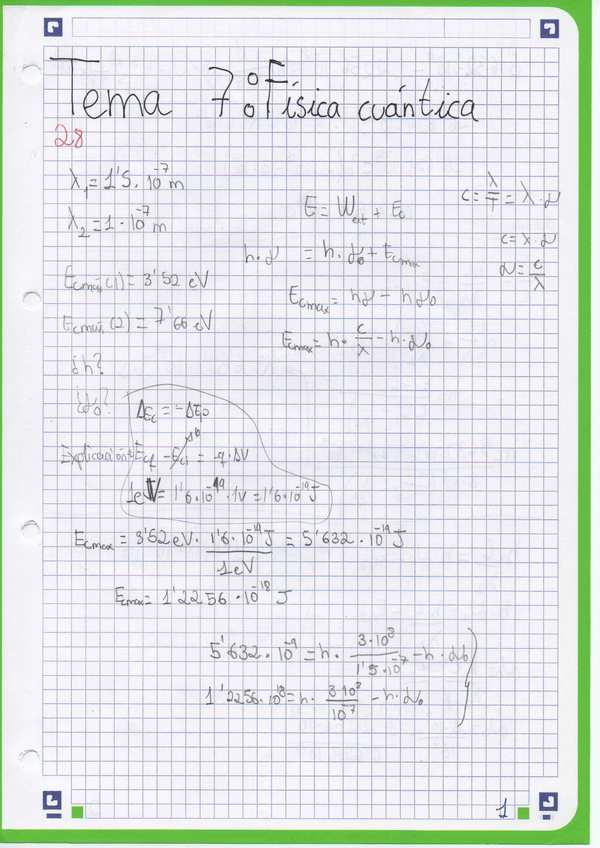 Tema 7: Física cuántica
28
λ₁ = 1'5 · 10⁻⁷ m
λ₂ = 1 · 10⁻⁷ m
Ecmáx(1) = 3'52 eV
Ecmáx(2) = 7'66 eV
¿h?
¿ν₀?
E = Wext + Ec
h·ν = h·ν₀ + Ecmax
Ecmax = hν - hν₀
Ecmax = h · c/λ - h·ν₀
c = λ/T = λ·ν
c = λ·ν
ν = c/λ
ΔEc = -ΔEp
Explicación: Ecf - Eci = -q·ΔV
1eV = 1'6·10⁻¹⁹·1V = 1'6·10⁻¹⁹J
Ecmax = 3'52eV · 1'6·10⁻¹⁹J/1eV = 5'632·10⁻¹⁹J
Ecmax = 1'2256·10⁻¹⁸ J
5'632·10⁻⁹ = h · 3·10⁸/1'5·10⁻⁷ - h·ν₀
1'2256·10¹⁸ = h · 3·10⁸/10⁻⁷ - h·ν₀
1